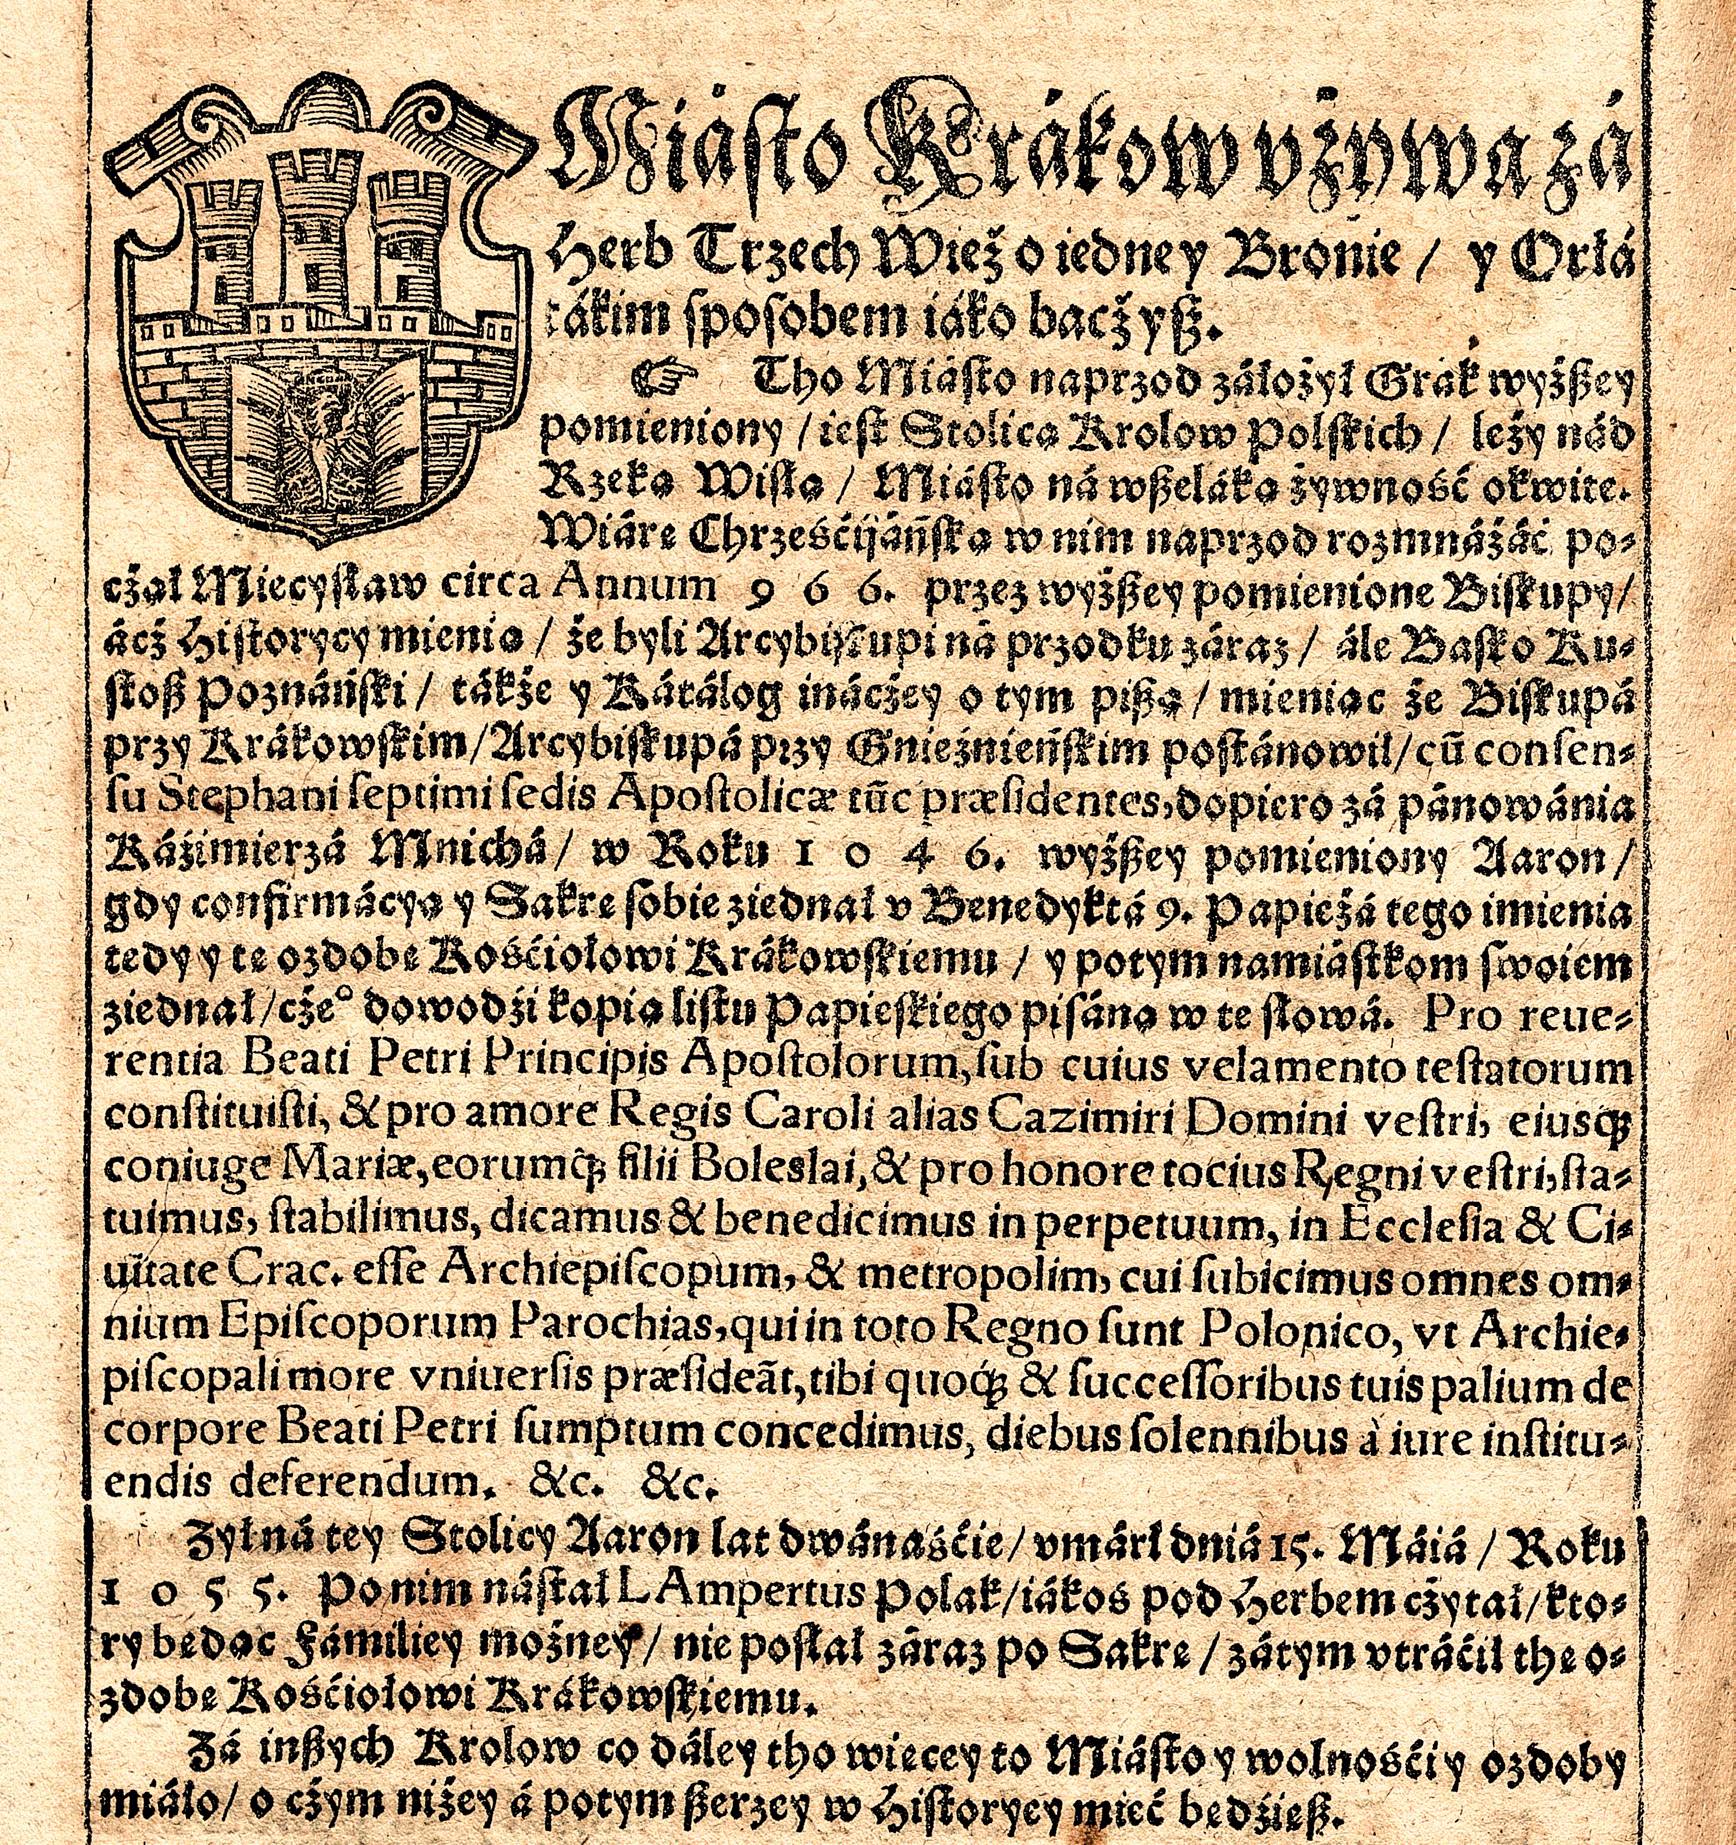 Miásto Krákow vżywa zá
Herb Trzech Wież o iedney Bronie / y Orłá
tákim sposobem iáko baczysz.
☞ Tho Miásto naprzod záłożył Grak wyższey
pomieniony / iest Stolicą Krolow Polskich / leży nád
Rzeką Wisłą / Miásto ná wszeláką żywność okwite.
Wiárę Chrześćijáńską w nim naprzod rozmnáżáć po⸗
cżął Miecysław circa Annum 9 6 6. przez wyższey pomienione Biskupy /
ácż Historycy mienią / że byli Arcybiskupi ná przodku záraz / ále Básko Ku⸗
stosz Poznáński / tákże y Kátálog inácżey o tym piszą / mieniąc że Biskupá
przy Krákowskim / Arcybiskupá przy Gnieźnieńskim postánowił / cũ consen⸗
su Stephani septimi sedis Apostolicæ tũc præsidentes, dopiero zá pánowánia
Káźimierzá Mnichá / w Roku 1 0 4 6. wyższey pomieniony Aaron /
gdy confirmácyą y Sakrę sobie ziednał v Benedyktá 9. Papieżá tego imienia
tedy y tę ozdobę Kośćiołowi Krákowskiemu / y potym namiástkom swoiem
ziednał / cże° dowodźi kopia listu Papieskiego pisána w te słowá. Pro reue⸗
rentia Beati Petri Principis Apostolorum, sub cuius velamento testatorum
constituisti, & pro amore Regis Caroli alias Cazimiri Domini vestri, eiusq́;
coniuge Mariæ, eorumq́; filii Boleslai, & pro honore tocius Regni vestri, sta⸗
tuimus, stabilimus, dicamus & benedicimus in perpetuum, in Ecclesia & Ci⸗
uitate Crac. esse Archiepiscopum, & metropolim, cui subicimus omnes om⸗
nium Episcoporum Parochias, qui in toto Regno sunt Polonico, vt Archie⸗
piscopali more vniuersis præsideãt, tibi quoq́; & successoribus tuis palium de
corpore Beati Petri sumptum concedimus, diebus solennibus à iure institu⸗
endis deferendum. &c. &c.
Zył ná tey Stolicy Aaron lat dwánaśćie / vmárł dniá 15. Máiá / Roku
1 0 5 5. Po nim nástał LAmpertus Polak / iákoś pod Herbem cżytał / kto⸗
ry będąc Fámiliey możney / nie posłał záraz po Sakrę / zátym vtráćił thę o⸗
zdobę Kośćiołowi Krákowskiemu.
Zá inszych Krolow co dáley tho więcey to Miásto y wolnośći y ozdoby
miáło / o cżym niżey á potym szerzey w Historyey mieć będźiesz.